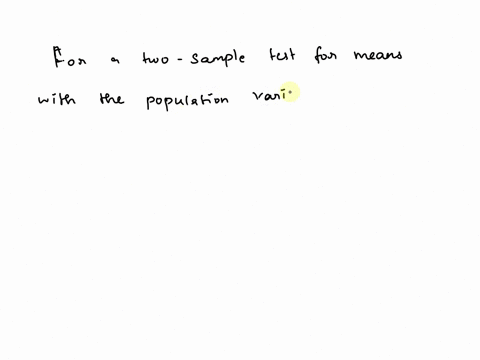 For a two-sample test for means
with the population vari